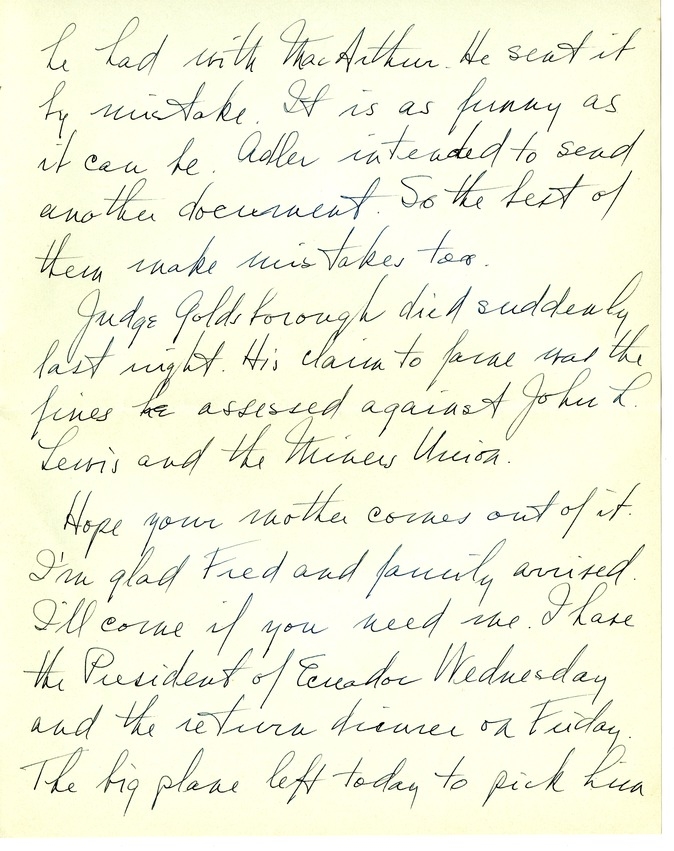 he had with MacArthur. He sent it
by mistake. It is as funny as
it can be. Adler intended to send
another document. So the best of
them make mistakes too.
Judge Goldsborough died suddenly
last night. His claim to fame was the
fines he assessed against John L.
Lewis and the Miners Union.
Hope your mother comes out of it.
I'm glad Fred and family arrived.
I'll come if you need me. I have
the President of Ecuador Wednesday
and the return dinner on Friday.
The big plane left today to pick him